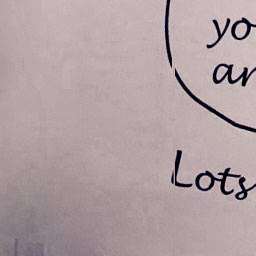 yo
ar
Lots